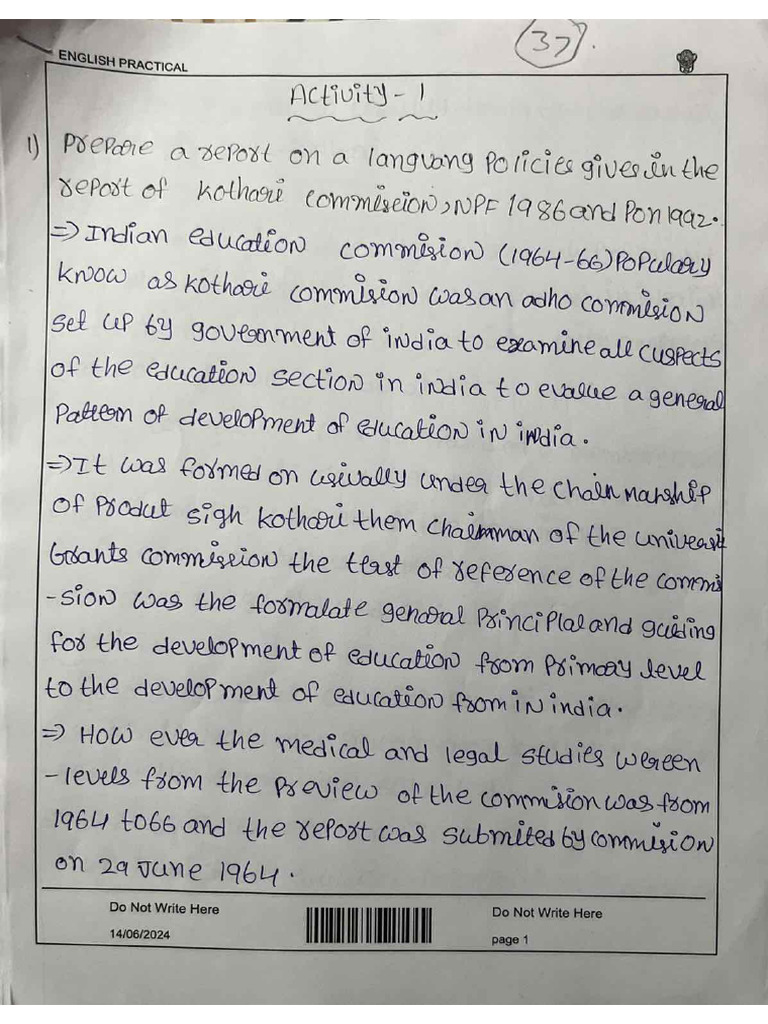 (37).
ENGLISH PRACTICAL
Activity - 1
1) Prepare a report on a languang policies gives in the
report of Kothari commiseion, NPF 1986 and Pon 1992.
⇒ Indian education commision (1964-66) popularry
know as kothari commision was an adho commision
set up by government of india to examine all cuspects
of the education section in india to evalue a general
pattern of development of education in india.
⇒ It was formed on usivally under the chain manship
of produt sigh kothari them chairman of the universit
Grants commission the terst of reference of the commi
-sion was the formalate general principlal and guiding
for the development of education from primary level
to the development of education from in india.
⇒ How ever the medical and legal studies wereen
-levels from the preview of the commision was from
1964 to 66 and the report was submited by commision
on 29 June 1964.
Do Not Write Here
14/06/2024
Do Not Write Here
page 1